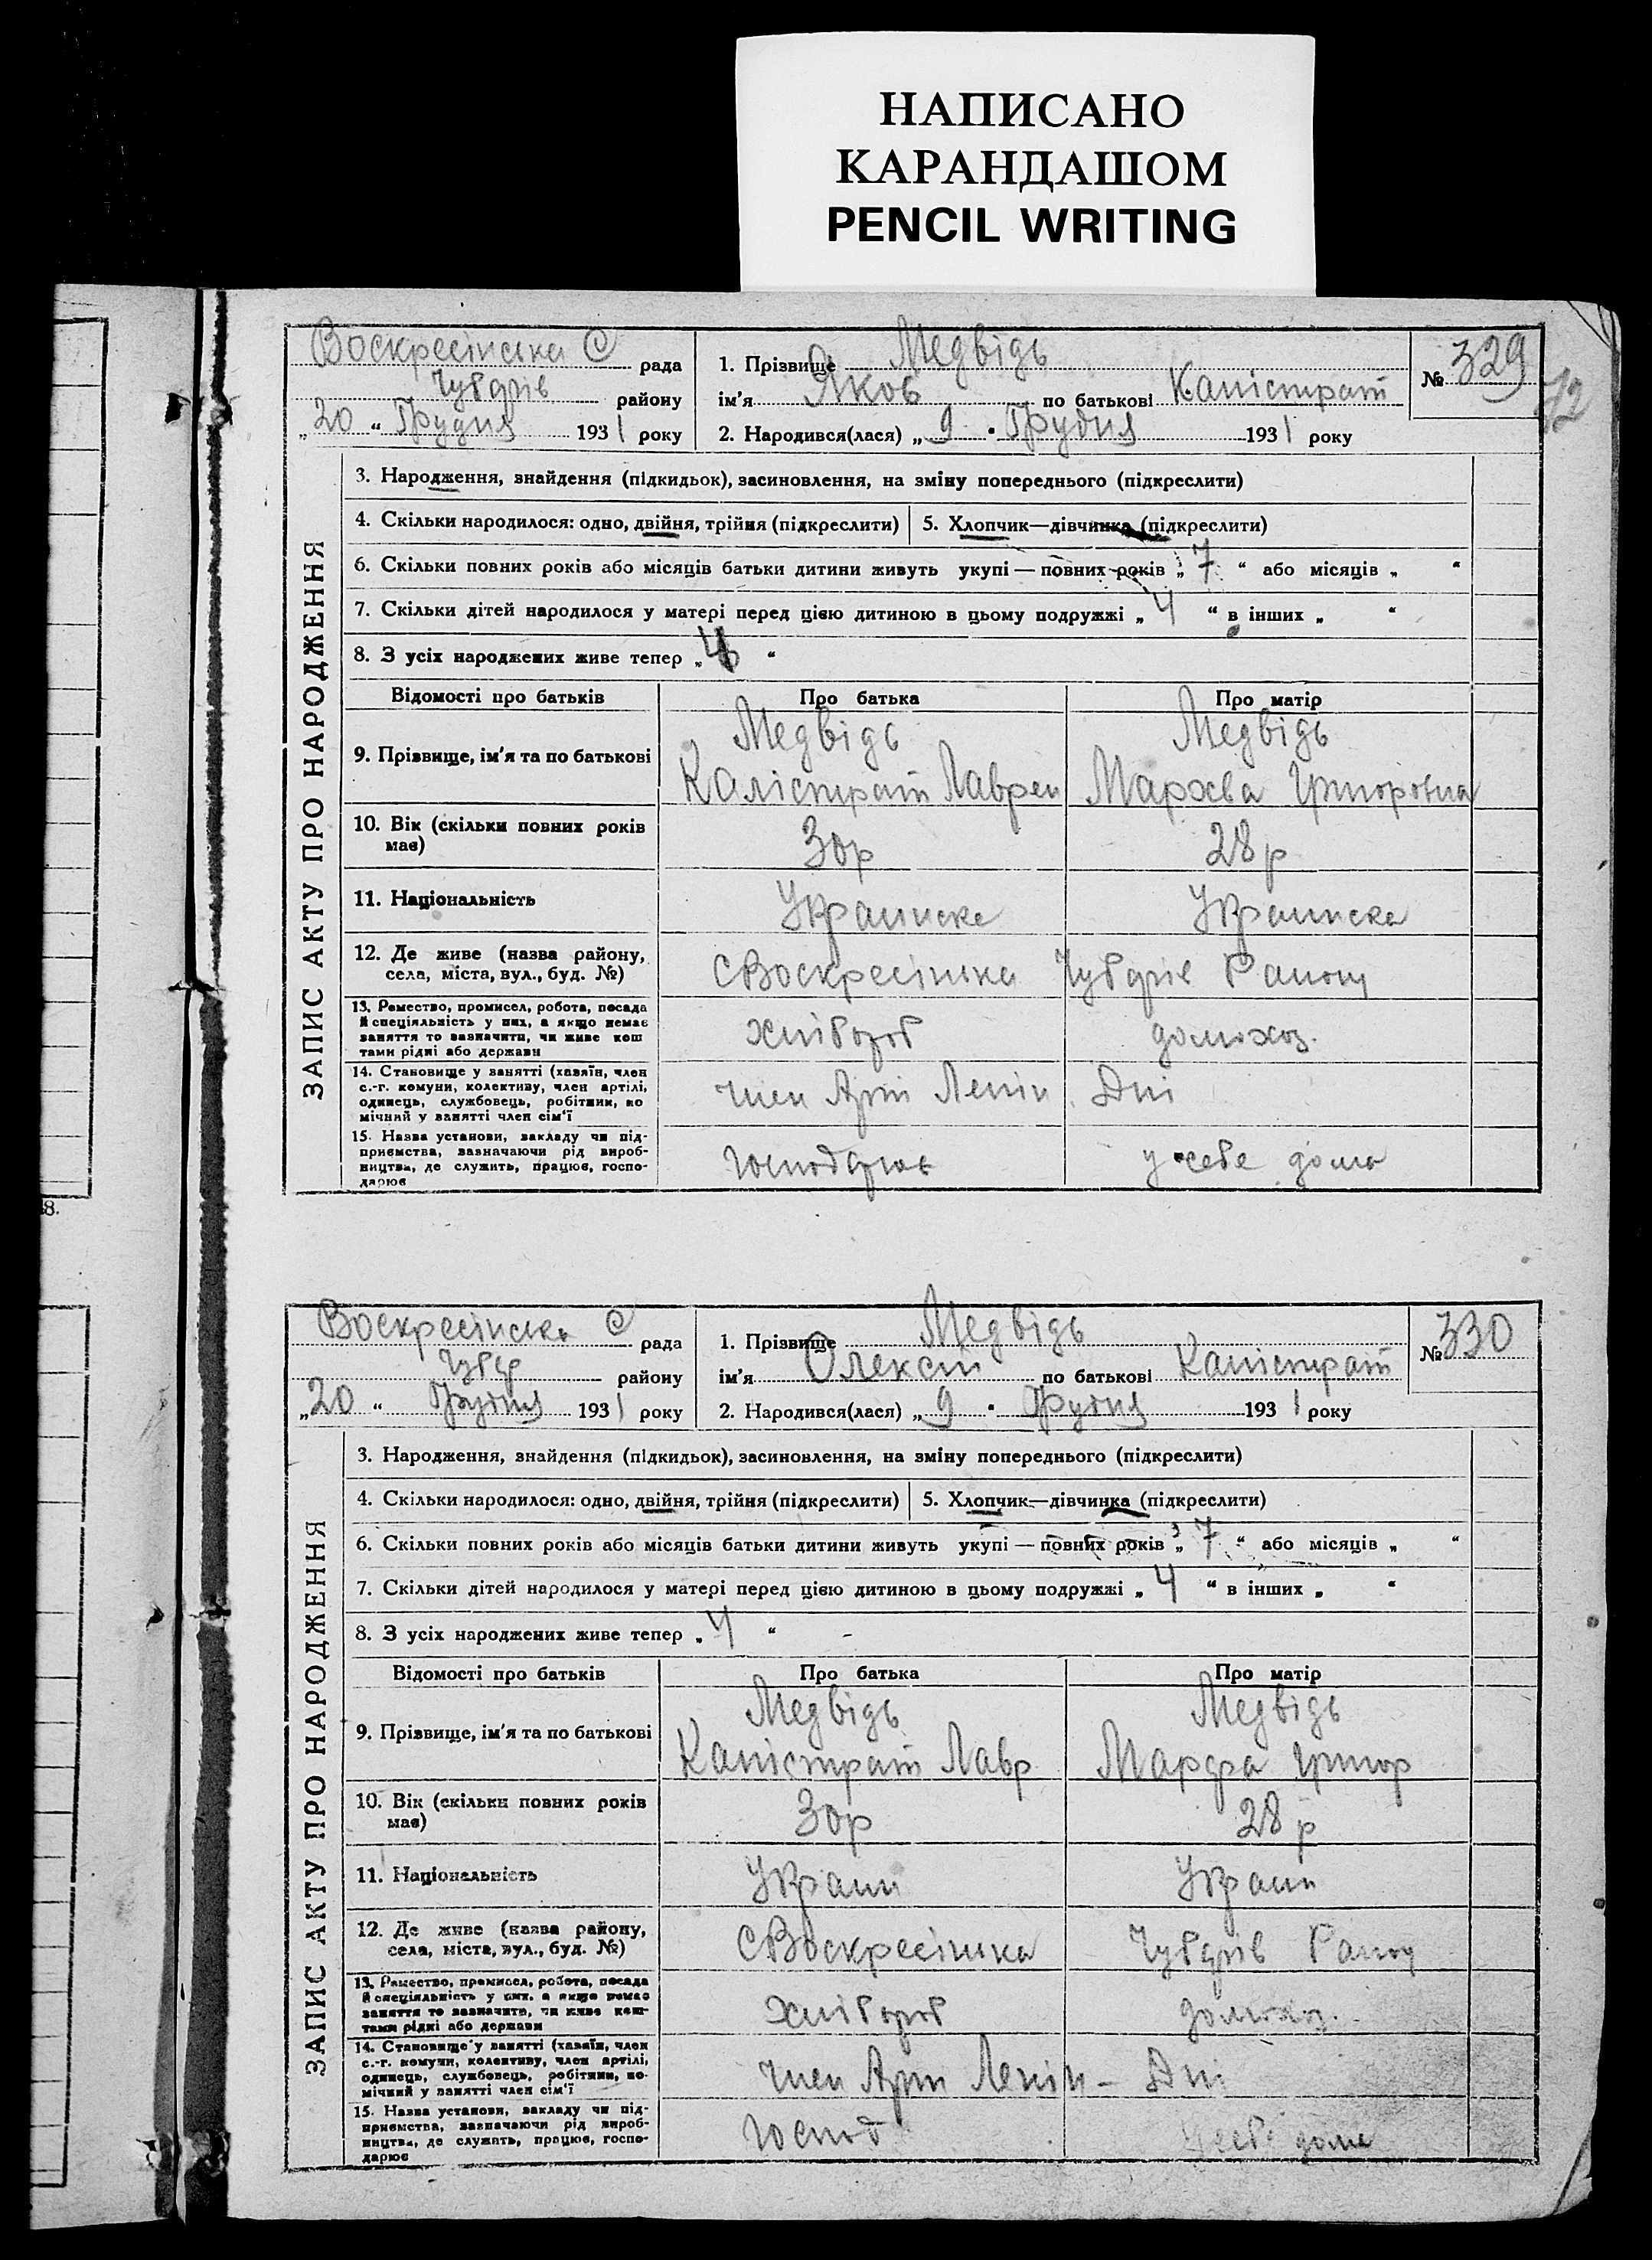 НАПИСАНО
КАРАНДАШОМ
PENCIL WRITING
Воскресінська С рада
Чубарів району
„20“ Грудня 1931 року
1. Прізвище Медвідь
ім’я Яков по батькові Калістрат
2. Народився(лася) „9“ Грудня 1931 року
№ 329
72
ЗАПИС АКТУ ПРО НАРОДЖЕННЯ
3. Народження, знайдення (підкидьок), засиновлення, на зміну попереднього (підкреслити)
4. Скільки народилося: одно, двійня, трійня (підкреслити) 5. Хлопчик—дівчинка (підкреслити)
6. Скільки повних років або місяців батьки дитини живуть укупі — повних років „7“ або місяців „ “
7. Скільки дітей народилося у матері перед цією дитиною в цьому подружжі „4“ в інших „ “
8. З усіх народжених живе тепер „4“
Відомості про батьків Про батька Про матір
9. Прізвище, ім’я та по батькові
Медвідь Медвідь
Калістрат Лаврен Григоровна
10. Вік (скільки повних років має) 30р 28р
11. Національність
12. Де живе (назва району, села, міста, вул., буд. №) С Воскресінка Чубарів Району
13. Ремество, промисел, робота, посада
й спеціяльність у них, а якщо немає
заняття то зазначити, чи живе кош
тами рідні або держави
хлібороб домохоз.
14. Становище у занятті (хазяїн, член
с.-г. комуни, колективу, член артілі,
одинець, службовець, робітник, по
мічний у занятті член сім’ї
член Арт Ленін Дні
15. Назва установи, закладу чи під-
приємства, зазначаючи рід вироб-
ництва, де служить, працює, госпо-
дарює
господарює у себе дома
8.
Воскресінська С рада
району
„20“ Грудня 1931 року
1. Прізвище Медвідь
ім’я Олексій по батькові Калістрат
2. Народився(лася) „9“ Грудня 1931 року
№ 330
ЗАПИС АКТУ ПРО НАРОДЖЕННЯ
3. Народження, знайдення (підкидьок), засиновлення, на зміну попереднього (підкреслити)
4. Скільки народилося: одно, двійня, трійня (підкреслити) 5. Хлопчик—дівчинка (підкреслити)
6. Скільки повних років або місяців батьки дитини живуть укупі — повних років „7“ або місяців „ “
7. Скільки дітей народилося у матері перед цією дитиною в цьому подружжі „4“ в інших „ “
8. З усіх народжених живе тепер „4“
Відомості про батьків Про батька Про матір
9. Прізвище, ім’я та по батькові
Медвідь Медвідь
Калістрат Лавр Марфа Григор
10. Вік (скільки повних років має) 30р 28р
11. Національність Украин Украин
12. Де живе (назва району, села, міста, вул., буд. №) С Воскресінка Чубарів Району
13. Ремество, промисел, робота, посада
й спеціяльність у них, а якщо немає
заняття то зазначити, чи живе кош-
тами рідні або держави
хлібороб домохоз.
14. Становище у занятті (хазяїн, член
с.-г. комуни, колективу, член артілі,
одинець, службовець, робітник, по-
мічний у занятті член сім’ї
член Арт Ленін - Дні
15. Назва установи, закладу чи під-
приємства, зазначаючи рід вироб-
ництва, де служить, працює, госпо-
дарює
господ у себе дома